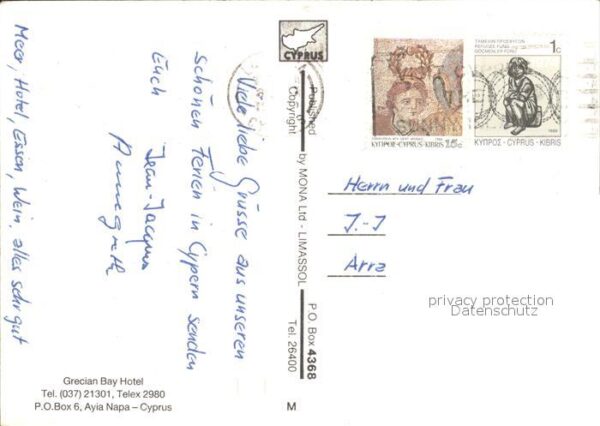 Viele liebe Grüsse aus unseren
schönen Ferien in Cypern senden
Euch
Jean-Jacques
Annegreth
Meer, Hotel, Essen, Wein, alles sehr gut
Grecian Bay Hotel
Tel. (037) 21301, Telex 2980
P.O.Box 6, Ayia Napa – Cyprus
CYPRUS
Published
Copyright by MONA Ltd - LIMASSOL P.O. Box 4368
Tel. 26400
M
15c
ΚΥΠΡΟΣ-CYPRUS-KIBRIS
ΤΑΜΕΙΟΝ ΠΡΟΣΦΥΓΩΝ
REFUGEE FUND
GÖÇMENLER FONU
1c
ΚΥΠΡΟΣ - CYPRUS - KIBRIS
Herrn und Frau
J.-J
Arra
privacy protection
Datenschutz